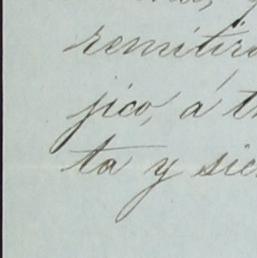 remitir
jico, á t
ta y sie